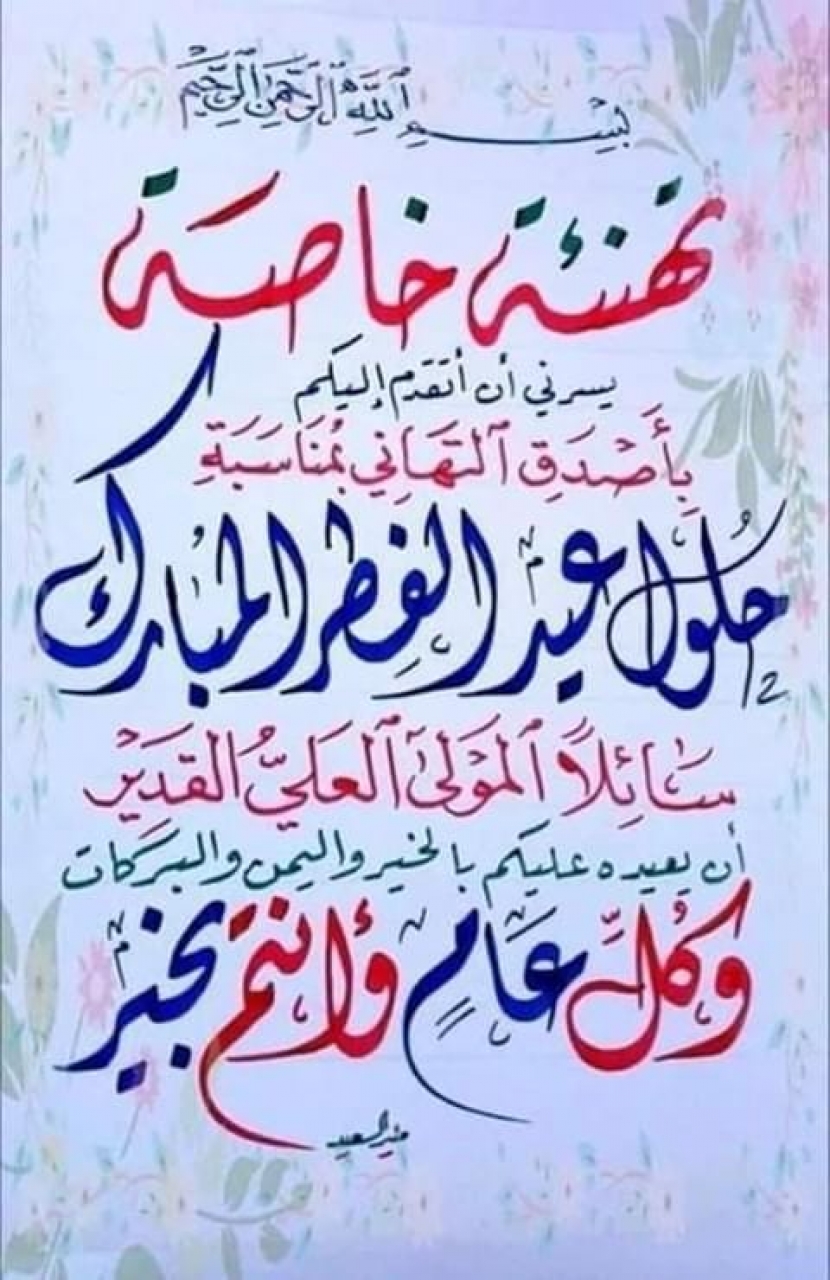 بِسْمِ اللَّهِ الرَّحْمَنِ الرَّحِيمِ
تهنئة خاصة
يسرني أن أتقدم إليكم
بِأَصْدَقِ ٱلتَهَانِي بمُنَاسَبَةِ
حُلول عيد الفِطر المُبارك
سَائِلًا ٱلمَوْلىٰ ٱلعَليُّ القَدِيْر
أن يعيده عليكم بالخير واليمن والبركات
وَكُلِّ عَامٍ وأنتم بخير